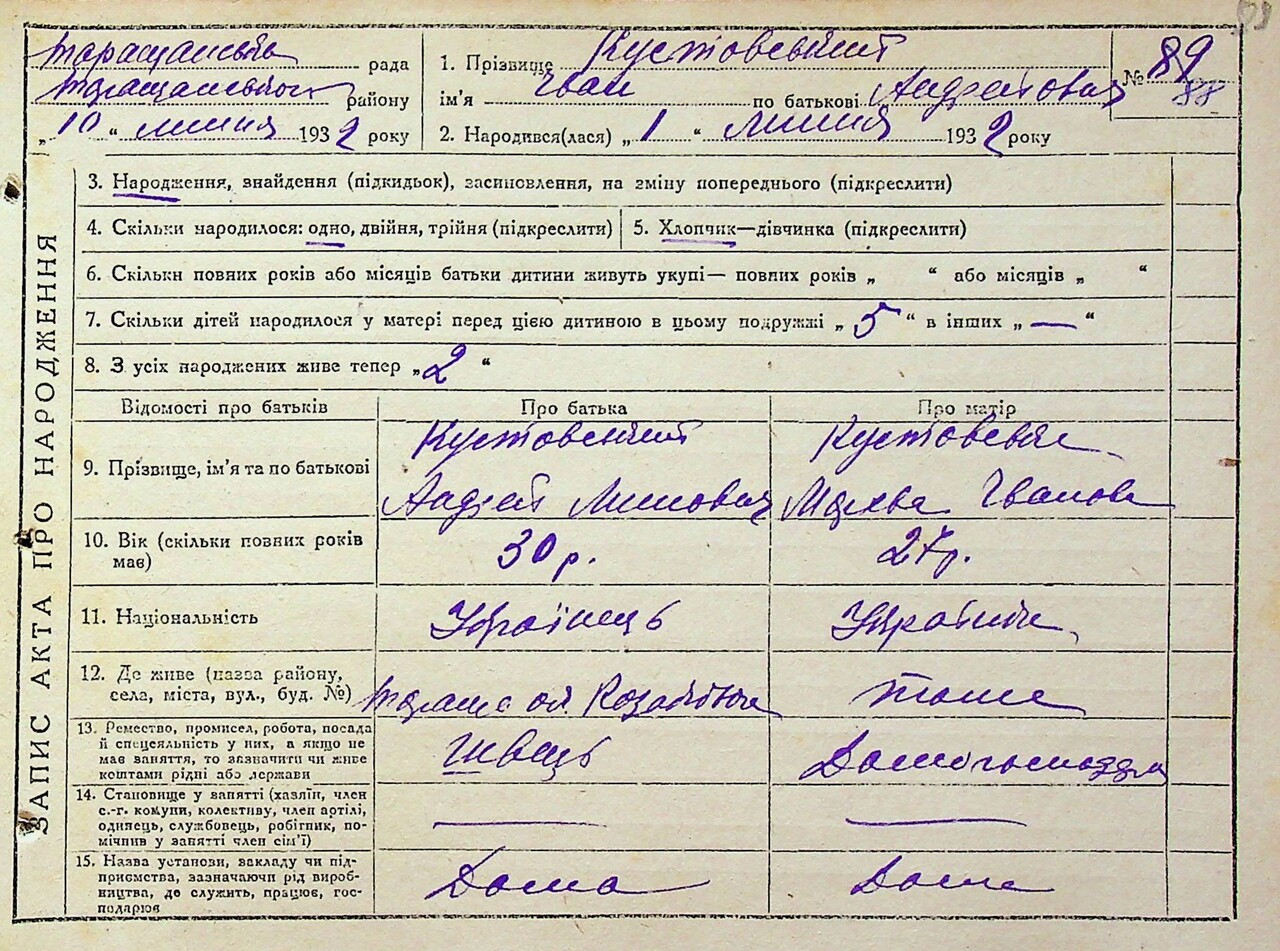 Таращанська рада
Таращанського району
„10“ липня 1932 року
1. Прізвище Кустовський
ім'я Іван по батькові Андрійович
2. Народився(лася) „1“ липня 1932 року
№ 89
88
ЗАПИС АКТА ПРО НАРОДЖЕННЯ
3. Народження, знайдення (підкидьок), засиновлення, на зміну попереднього (підкреслити)
4. Скільки народилося: одно, двійня, трійня (підкреслити) 5. Хлопчик—дівчинка (підкреслити)
6. Скільки повних років або місяців батьки дитини живуть укупі— повних років „ “ або місяців „ “
7. Скільки дітей народилося у матері перед цією дитиною в цьому подружжі „5“ в інших „—“
8. З усіх народжених живе тепер „2“
Відомості про батьків Про батька Про матір
9. Прізвище, ім'я та по батькові
Кустовський
Андрій
Кустовська
Іванова
10. Вік (скільки повних років
має)
30 р. 27 р.
11. Національність Українець Українка
12. Де живе (назва району,
села, міста, вул., буд. №)
тоже
13. Ремество, промисел, робота, посада
й спецсяльність у них, а якщо не
має заняття, то зазначити чи живе
коштами рідні або держави
Швець
14. Становище у занятті (хазяїн, член
с.-г. комуни, колективу, член артілі,
одинець, службовець, робітник, по-
мічник у занятті член сім'ї)
— —
15. Назва установи, закладу чи під-
приємства, зазначаючи рід вироб-
ництва, де служить, працює, гос-
подарює
Дома Дома